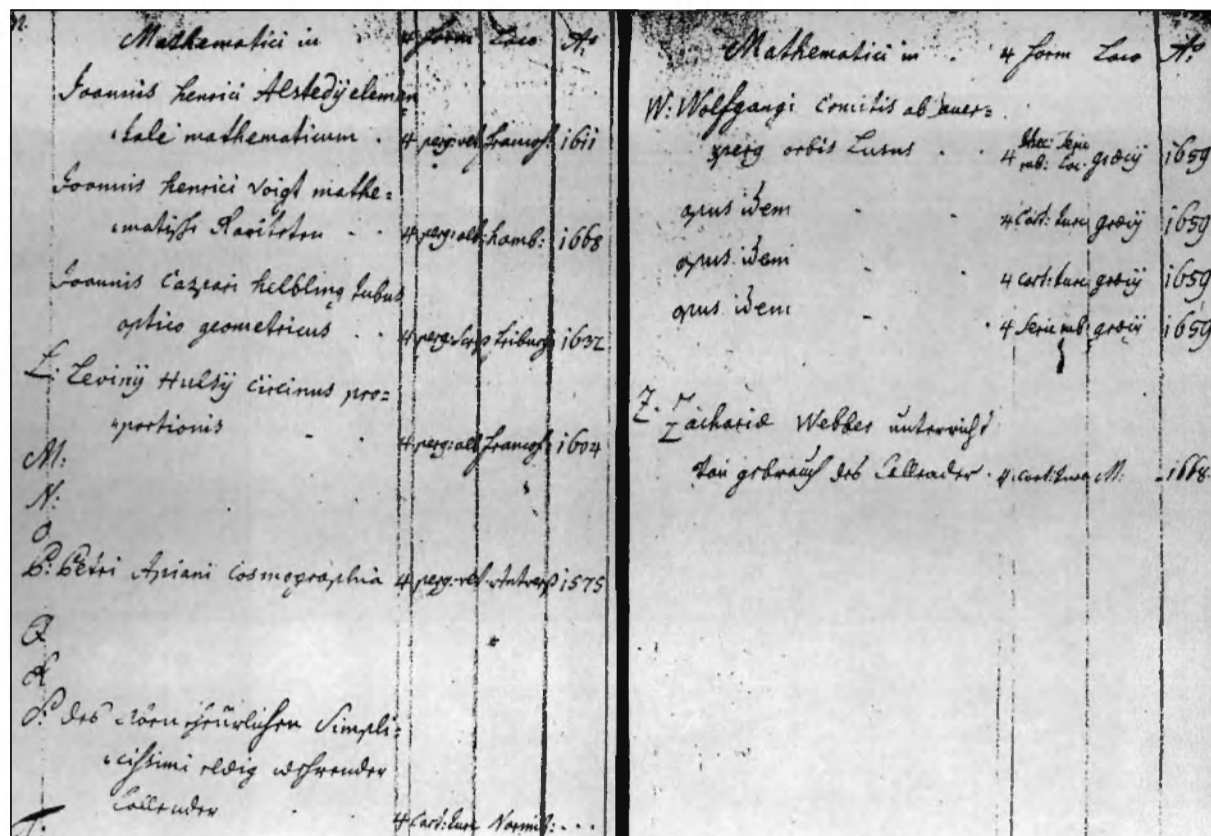 Mathematici in 4 form Loco Aº
Joannis henrici Alstedij elemen
tale mathematicum . 4 perg: vet francof: 1611
Joannis henrici Voigt mathe=
matische Rariteten . . 4 perg: alb: hamb: 1668
Joannis Caspari helbling tubus
optico geometricus . . 4 friburg 1632
L: Levinij Hulsij Circinus pro=
portionis . . 4 perg: alb francof: 1604
M:
N:
O
P: Petri Apiani Cosmographia 4 perg: vet Antverp 1575
Q
R
S: des Simpli=
cissimi wehrender
Callender 4 Cart: turc Norimb: . . .
T:
Mathematici in . 4 form Loco Aº
W: Wolfgangi Comitis ab auer=
sperg orbis Lusus . . 4 græcij 1659
opus idem . 4 Cart: turc græcij 1659
opus idem . 4 Cart: turc græcij 1659
opus idem . 4 græcij 1659
Z: Zachariæ Webber unterricht
von gebrauch des Callender . 4 Cart: turc M: . 1668